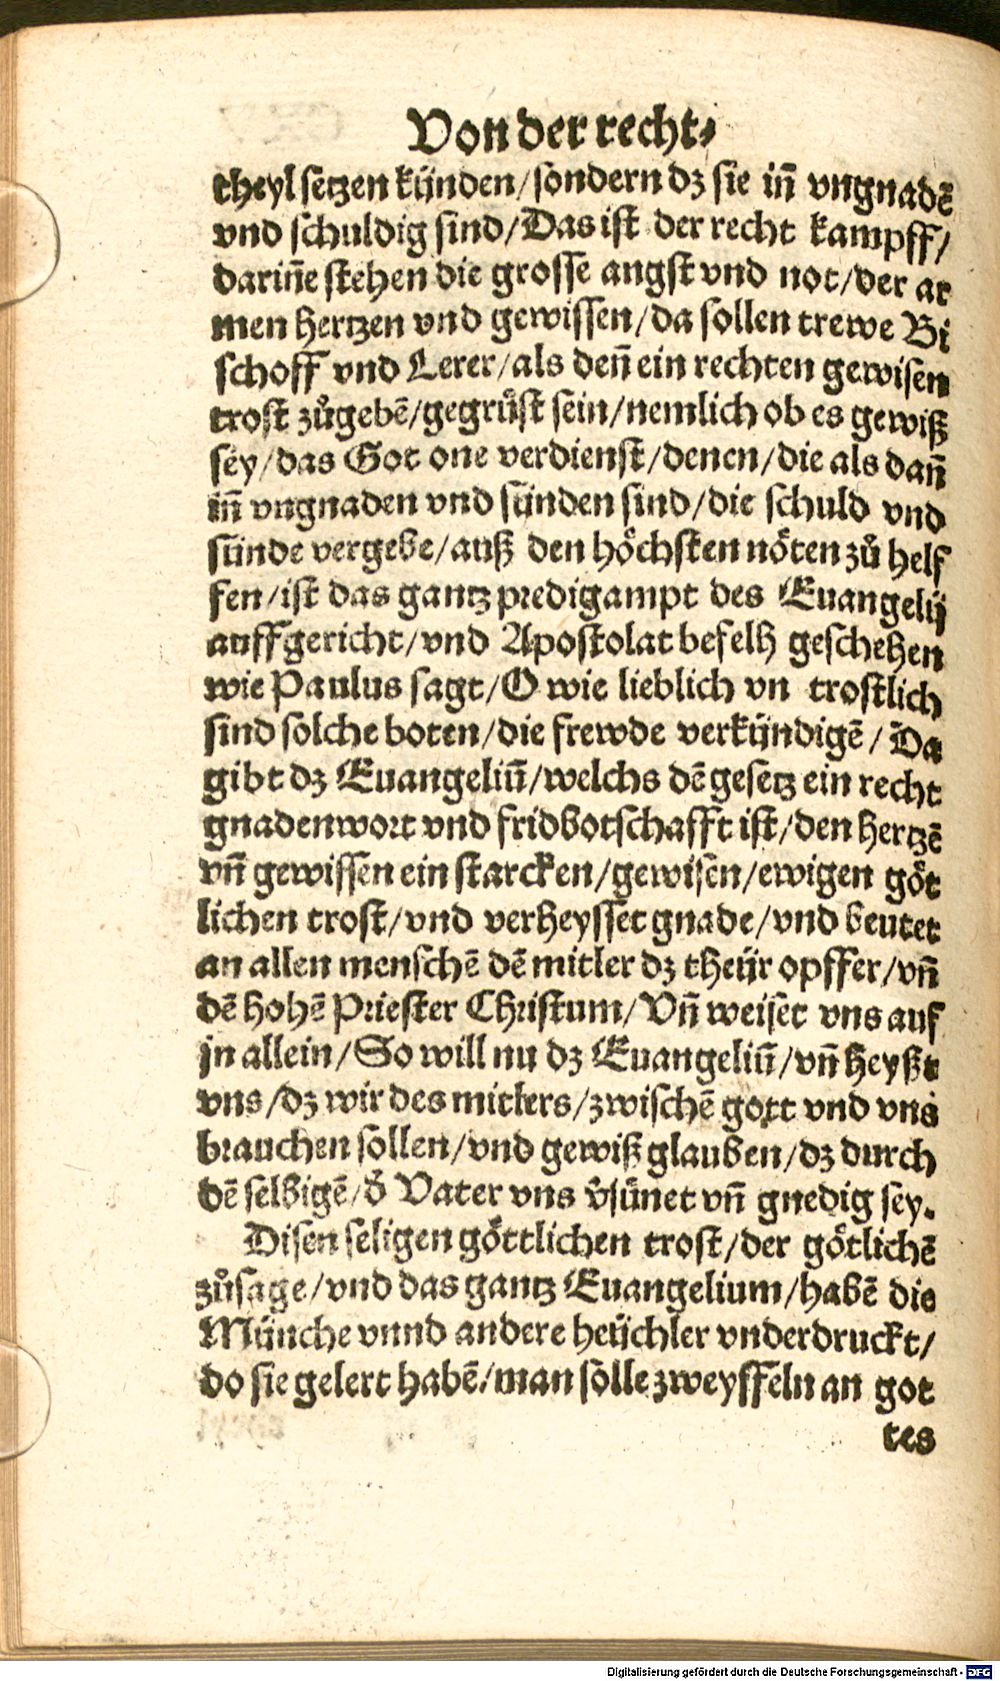 Von der recht⸗
theyl setzen künden/sondern dz sie iñ vngnadẽ
vnd schuldig sind/Das ist der recht kampff/
dariñe stehen die grosse angst vnd not/der ar
men hertzen vnd gewissen/da sollen trewe Bi
schoff vnd Lerer/als deñ ein rechten gewisen
trost zůgebẽ/gegrüst sein/nemlich ob es gewiß
sey/das Got one verdienst/denen/die als dañ
iñ vngnaden vnd sünden sind/die schuld vnd
sünde vergebe/auß den höchsten nöten zů helf
fen/ist das gantz predigampt des Euangelij
auffgericht/vnd Apostolat befelh geschehen
wie Paulus sagt/O wie lieblich vn trostlich
sind solche boten/die frewde verkündigẽ/Da
gibt dz Euangeliũ/welchs dẽ gesetz ein recht
gnadenwort vnd fridbotschafft ist/den hertzẽ
vñ gewissen ein starcken/gewisen/ewigen göt
lichen trost/vnd verheysset gnade/vnd beutet
an allen menschẽ dẽ mitler dz theür opffer/vñ
dẽ hohẽ Priester Christum/Vñ weiset vns auf
jn allein/So will nu dz Euangeliũ/vñ heyßt
vns/dz wir des mitlers/zwischẽ gott vnd vns
brauchen sollen/vnd gewiß glauben/dz durch
dẽ selbigẽ/d̕ Vater vns v̕sünet vñ gnedig sey.
Disen seligen göttlichen trost/der götlichẽ
zůsage/vnd das gantz Euangelium/habẽ die
Münche vnnd andere heüchler vnderdruckt/
do sie gelert habẽ/man sölle zweyffeln an got
tes
Digitalisierung gefördert durch die Deutsche Forschungsgemeinschaft - DFG